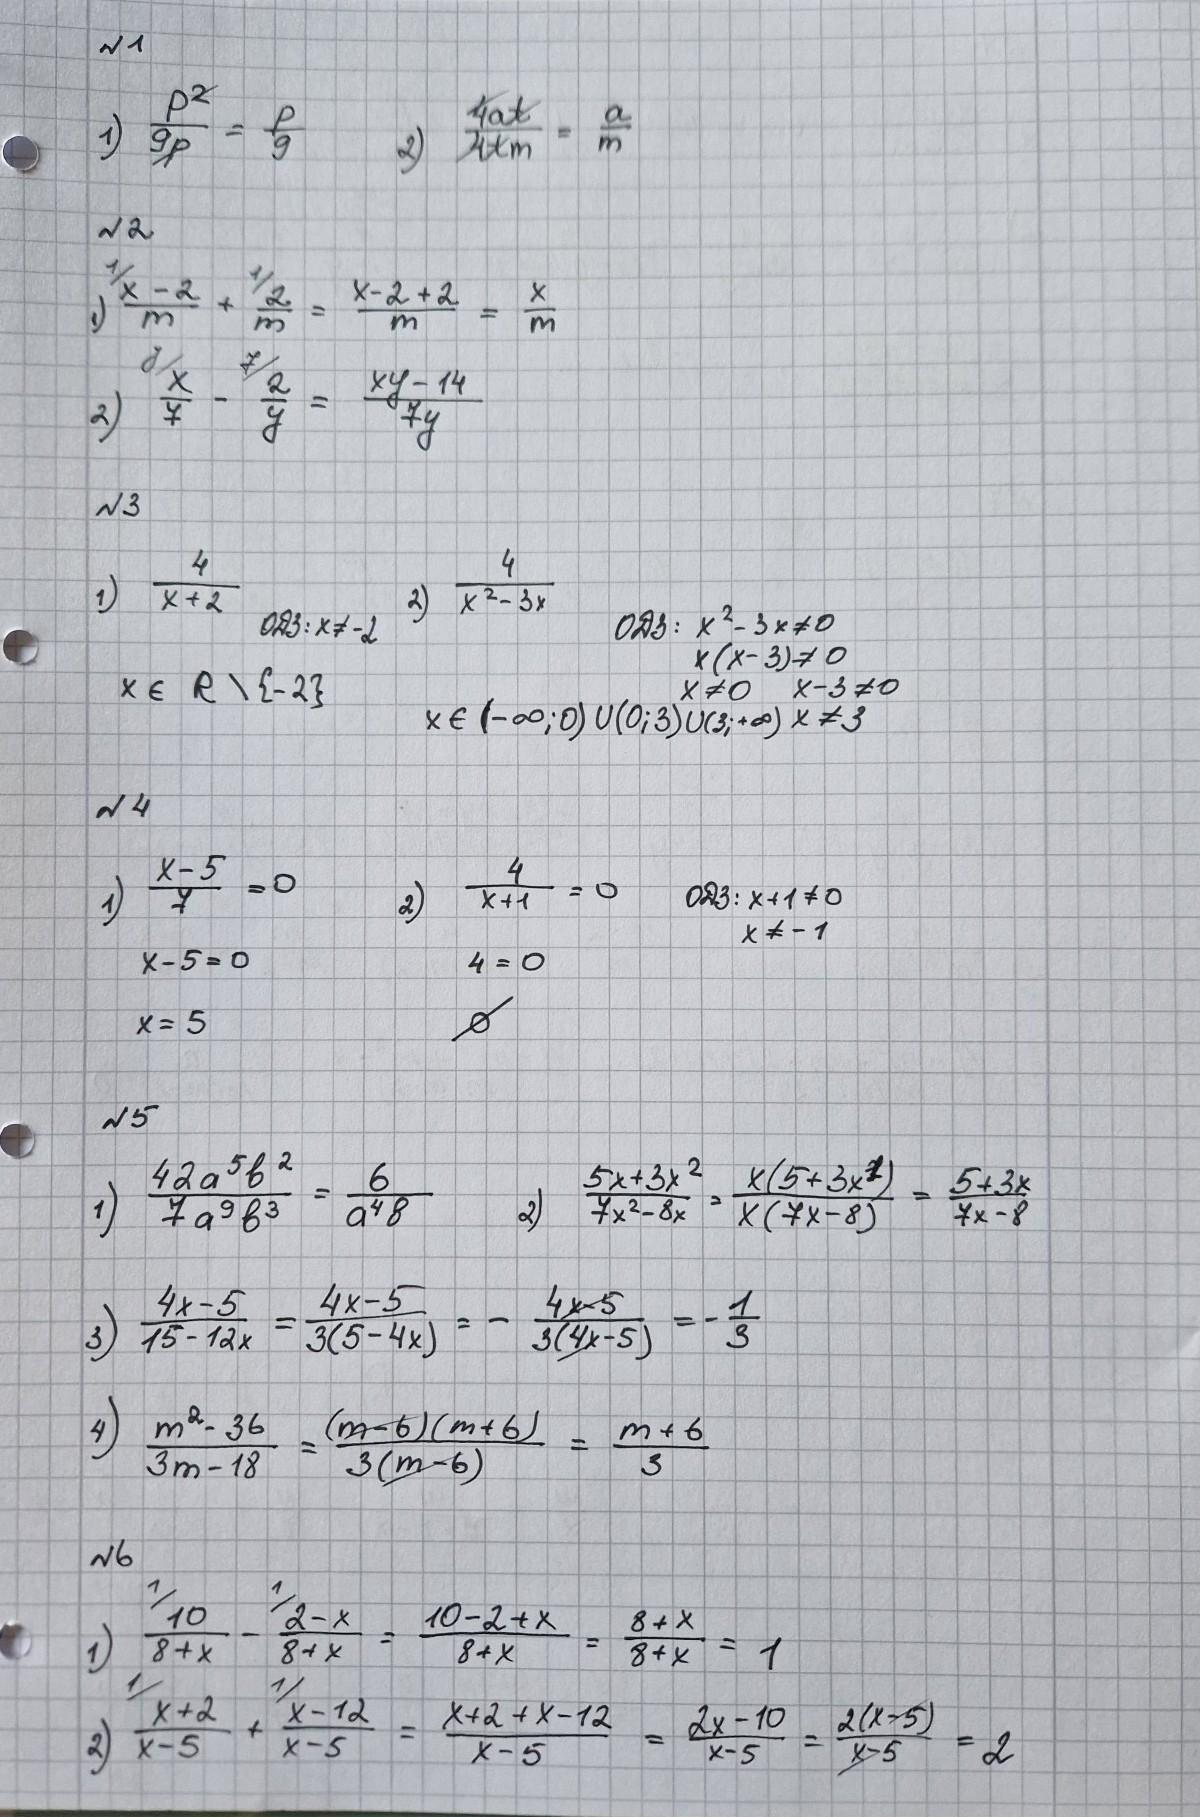 №1
1) p²/9p = p/9   2) 4at/4tm = a/m
№2
1) ¹/ (x-2)/m + ¹/ 2/m = (x-2+2)/m = x/m
2) ʸ/ x/7 - ⁷/ 2/y = (xy-14)/7y
№3
1) 4/(x+2)   2) 4/(x²-3x)
ОДЗ: x≠-2   ОДЗ: x²-3x≠0
x(x-3)≠0
x ∈ R \ {-2}   x≠0   x-3≠0
x ∈ (-∞;0) U (0;3) U (3;+∞)   x≠3
№4
1) (x-5)/7 = 0   2) 4/(x+1) = 0   ОДЗ: x+1≠0
x≠-1
x-5=0   4=0
x=5   ∅
№5
1) 42a⁵b²/7a⁹b³ = 6/a⁴b   2) (5x+3x²)/(7x²-8x) = x(5+3x)/x(7x-8) = (5+3x)/(7x-8)
3) (4x-5)/(15-12x) = (4x-5)/3(5-4x) = - (4x-5)/3(4x-5) = -1/3
4) (m²-36)/(3m-18) = (m-6)(m+6)/3(m-6) = (m+6)/3
№6
1) ¹/ 10/(8+x) - ¹/ (2-x)/(8+x) = (10-2+x)/(8+x) = (8+x)/(8+x) = 1
2) ¹/ (x+2)/(x-5) + ¹/ (x-12)/(x-5) = (x+2+x-12)/(x-5) = (2x-10)/(x-5) = 2(x-5)/(x-5) = 2